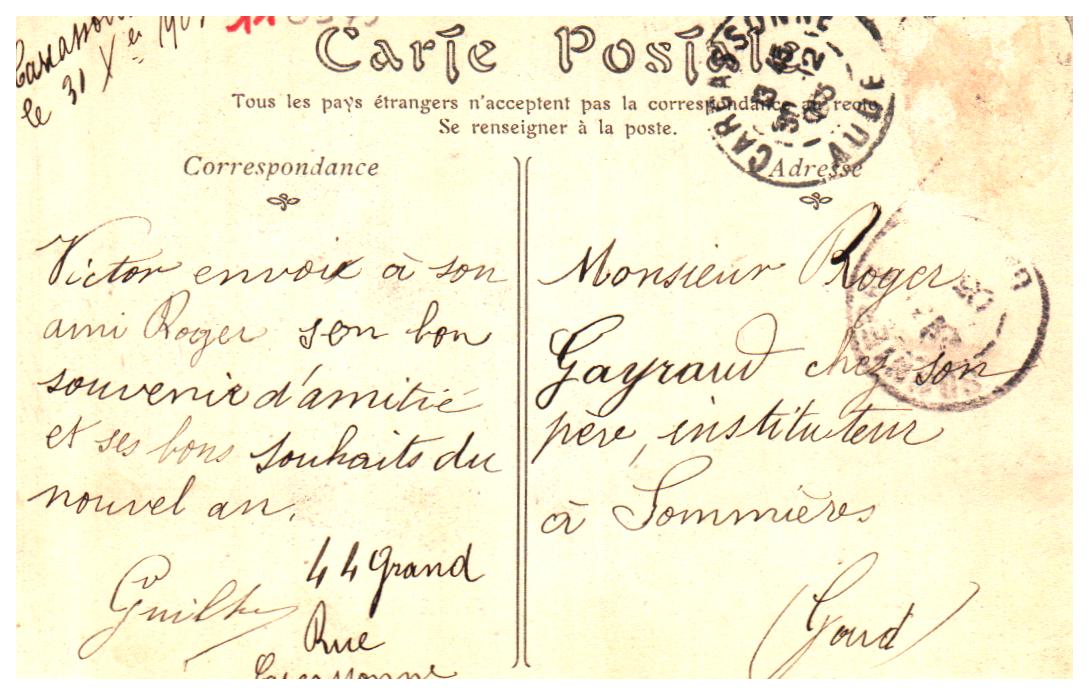 Carcassonne
le 31 Xer
Carte Postale
Tous les pays étrangers n'acceptent pas la correspondance au recto
Se renseigner à la poste.
CARCASSONNE
AUDE
Correspondance
Victor envoie à son
ami Roger son bon
souvenir d'amitié
et ses bons souhaits du
nouvel an.
44 Grand
Rue
Carcassonne
Adresse
Monsieur Roger
Gayraud chez son
père, instituteur
à Sommières
(Gard)